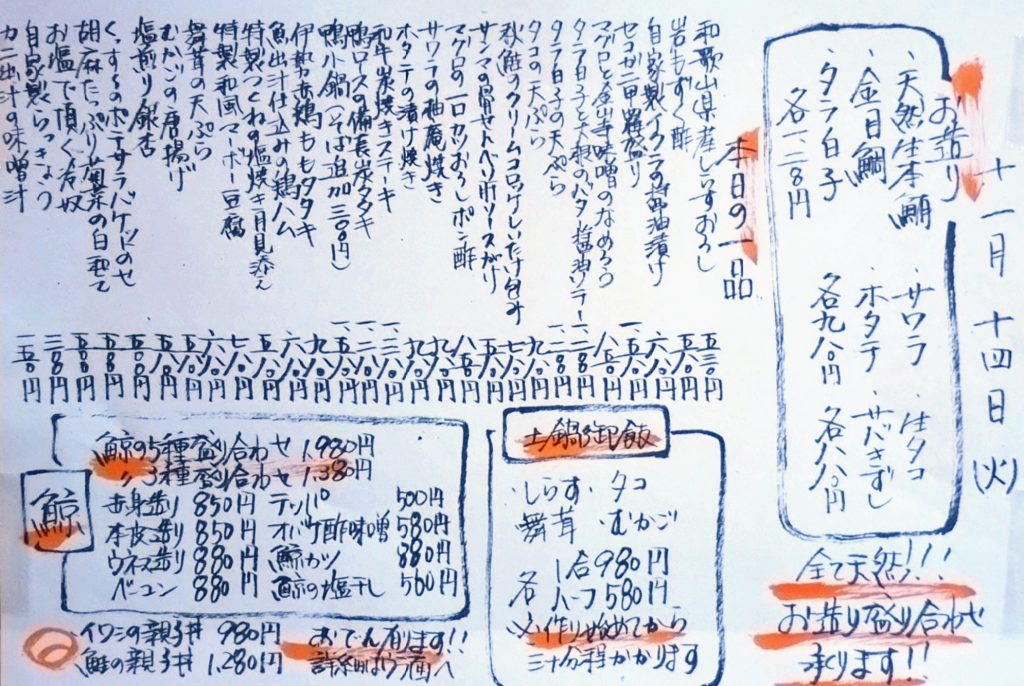 十一月十四日(火)
お造り
・天然生本鮪
・金目鯛
・タラ白子
各一、二八〇円
・サワラ
・ホタテ
各九八〇円
・生タコ
・サバきずし
各八八〇円
全て天然!!!
お造り盛り合わせ
承ります!!
本日の一品
和歌山県産しらすおろし 五三〇円
岩もずく酢 五五〇円
自家製イクラの醤油漬け
セコガニ甲羅盛り
マグロと金山寺味噌のなめろう
タラ白子と大根のバタ醤油ソテー
タラ白子の天ぷら
タコの天ぷら
秋鮭のクリームコロッケしいたけ包み
サンマの骨せんべい肝ソースがけ
マグロの一口カツおろしポン酢
サワラの柚庵焼き
ホタテの漬け焼き
和牛炭焼きステーキ
鴨ロースの備長炭タタキ
鴨小鍋(そば追加三〇〇円)
伊勢赤鶏ももタタキ
魚出汁仕込みの鶏ハム
特製つくねの塩焼き月見添え
特製和風マーボー豆腐
舞茸の天ぷら
むかごの唐揚げ
塩煎り銀杏
くんすーのポテサラバケットのせ
胡麻たっぷり菊菜の白和え
お塩で頂く冷奴 三八〇円
自家製らっきょう 三〇〇円
カニ出汁の味噌汁 二五〇円
鯨
鯨の5種盛り合わせ 1,980円
〃3種盛り合わせ 1,380円
赤身造り 850円 テッパ 500円
本皮造り 850円 オバケ酢味噌 580円
ウネス造り 880円 鯨カツ 880円
ベーコン 880円 鯨の塩干し 560円
イワシの親子丼 980円
鮭の親子丼 1,280円
おでん有ります!!
土鍋御飯
・しらす ・タコ
・舞茸 ・むかご
各 1合980円
ハーフ580円
※作り始めてから
三十分程かかります